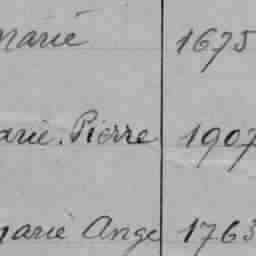 marie 1675
arie. Pierre 1907
marie Ange 1763